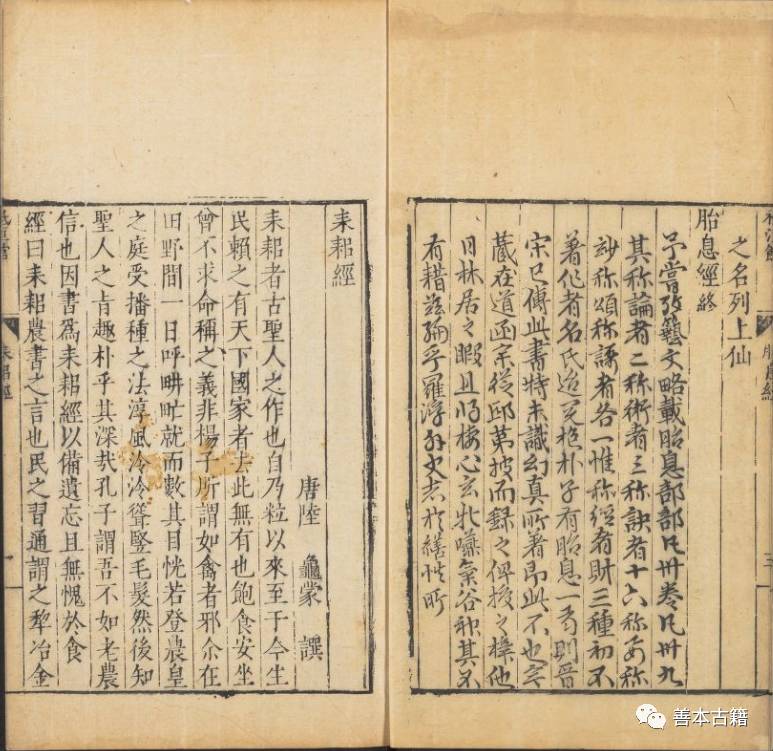 之名列上仙
胎息經終
予嘗攷藝文略載胎息部部凡卅卷凡卅九
其称論者二称術者三称訣者十六称称
称頌称者各一惟称經者財三種初不
著作者名氏迨抱朴子有胎息一篇則晉
宋已傳此書特未識幻真所著即此不也
藏在道函余從邱苐披而録之俾授之樟他
日林居之暇且將棲心玄牝嚥氣谷神其不
有耤茲編乎羅浮外史志於繕性所
耒耜經
唐陸龜蒙撰
耒耜者古聖人之作也自乃粒以來至于今生
民賴之有天下國家者去此無有也飽食安坐
曾不求命稱之義非楊子所謂如禽者邪尒在
田野間一日呼畊甿就而數其目恍若登農皇
之庭受播種之法淳風泠泠聳竪毛髮然後知
聖人之旨趣朴乎其深哉孔子謂吾不如老農
信也因書爲耒耜經以備遺忘且無愧於食
經曰耒耜農書之言也民之習通謂之犂冶金
耒耜經
一
善本古籍